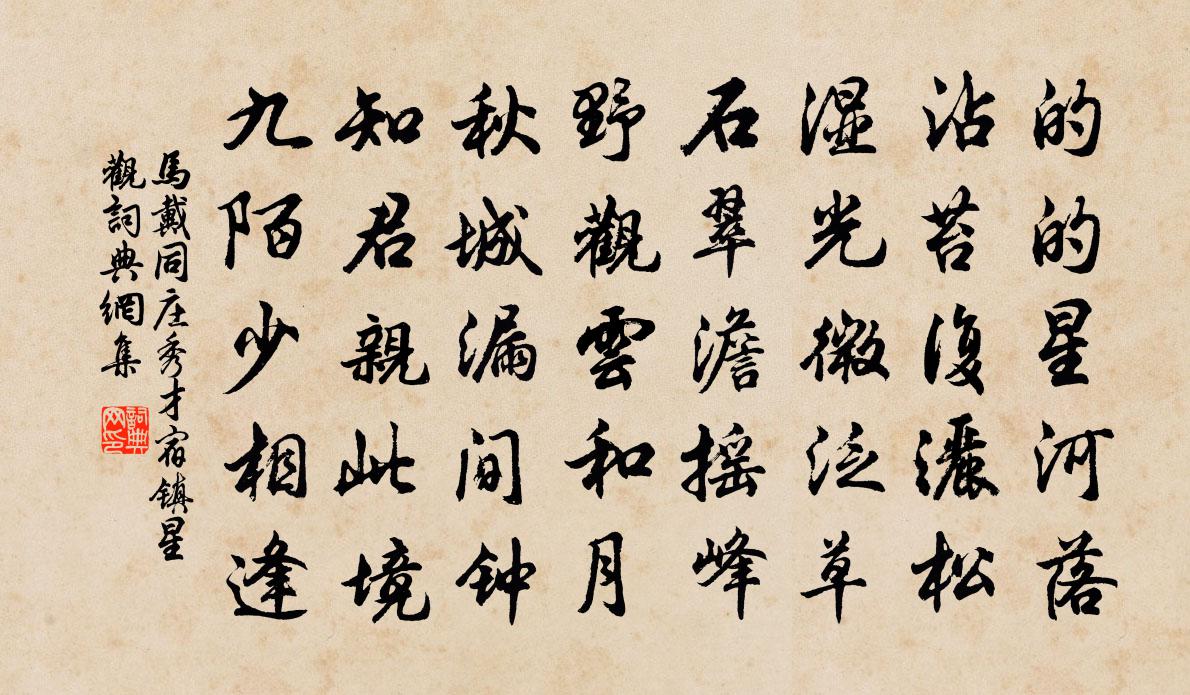 的的星河落
沾苔復灑松
湿光微泛草
石翠澹摇峰
野觀雲和月
秋城漏间钟
知君親此境
九陌少相逢
馬戴同庄秀才宿镇星
觀詞典網集
詞典网印